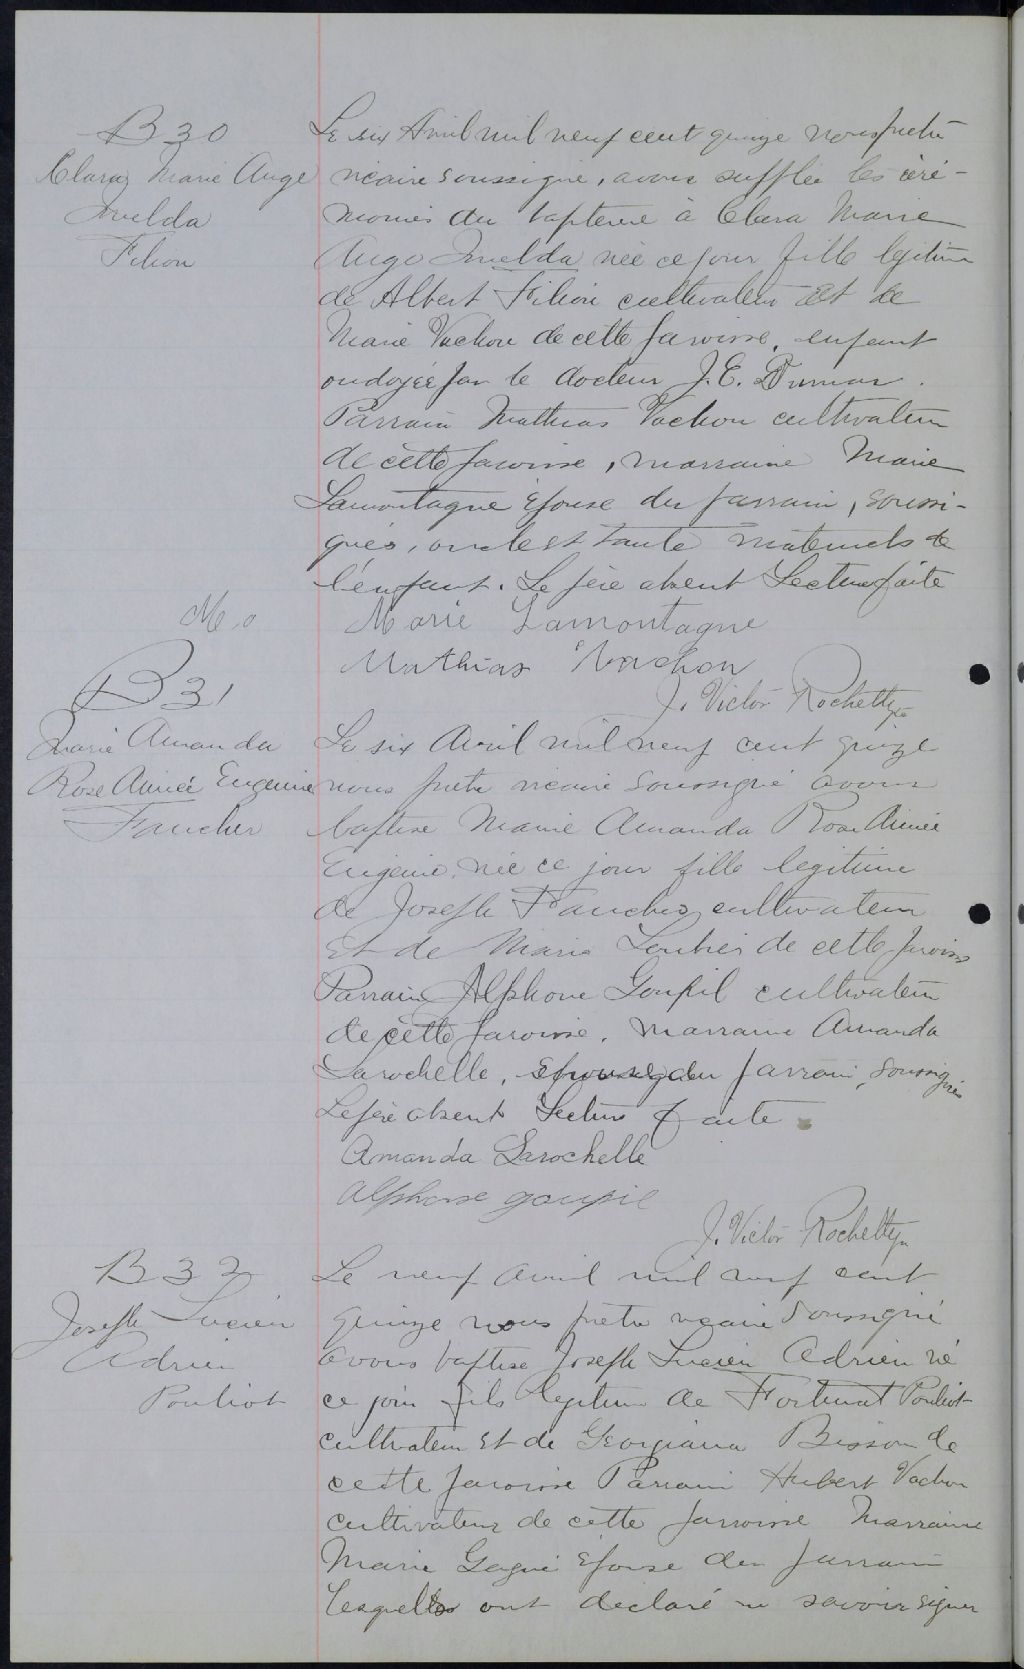 B 30
Clara Marie Ange
Imelda
Filion
Le six Avril mil neuf cent quinze nous prêtre
vicaire soussigné, avons suppléé les céré-
monies du baptême à Clara Marie
Ange Imelda née ce jour fille légitime
de Albert Filion cultivateur et de
Marie Vachon de cette paroisse, enfant
ondoyée par le docteur J.E. Dumas.
Parrain Mathias Vachon cultivateur
de cette paroisse, marraine Marie
Lamontagne épouse du parrain, soussi-
gnés, oncle et tante maternels de
l'enfant. Le père absent Lecture faite
Marie Lamontagne
Mathias Vachon
J. Victor Rochette
B 31
Marie Amanda
Rose Aimée Eugénie
Faucher
Le six Avril mil neuf cent quinze
nous prêtre vicaire soussigné avons
baptisé Marie Amanda Rose Aimée
Eugénie, née ce jour fille légitime
de Joseph Faucher cultivateur
et de Marie de cette paroisse
Parrain Alphonse Goupil cultivateur
de cette paroisse, marraine Amanda
Larochelle, épouse du parrain, soussignés
Le père absent Lecture faite.
Amanda Larochelle
Alphonse goupil
J. Victor Rochette
B 32
Joseph Lucien
Adrien
Pouliot
Le neuf Avril mil neuf cent
quinze nous prêtre vicaire soussigné
avons baptisé Joseph Lucien Adrien né
ce jour fils légitime de Fortunat Pouliot
cultivateur et de Georgiana Bisson de
cette paroisse Parrain Hubert Vachon
cultivateur de cette paroisse Marraine
Marie Gagné épouse du parrain
lesquels ont déclaré ne savoir signer